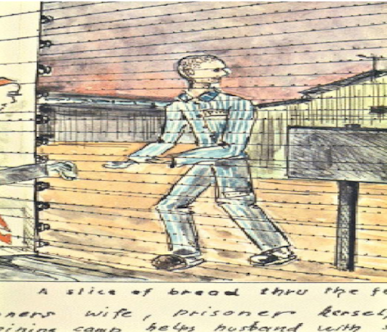 A slice of bread thru the fe
oners wife, prisoner kersch
aining camp helps husband with s